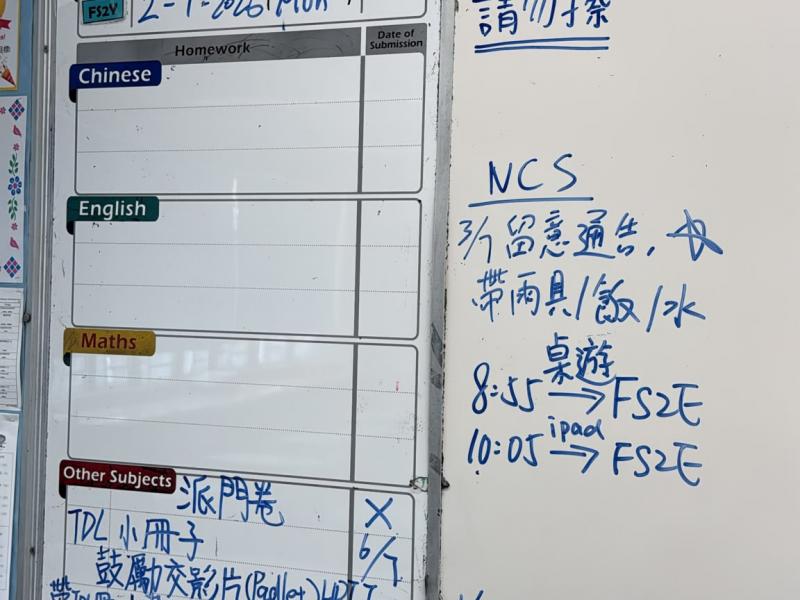 FS2Y
請勿擦
Homework
Date of Submission
Chinese
NCS
English
3/7 留意通告, ☆
帶雨具/飯/水
Maths
桌遊
8:55 → FS2E
ipad
10:05 → FS2E
Other Subjects
派門卷 X
TDL 小冊子 6/7
鼓勵交影片(Padlet)